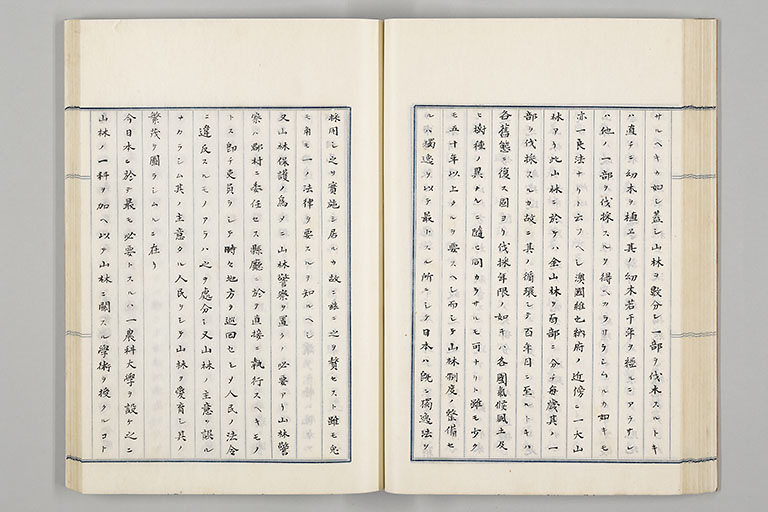 サルヘキカ如シ蓋シ山林ヲ數分シ一部ヲ伐木スルトキ
ハ直チニ幼木ヲ植ヱ其ノ幼木若干年ヲ經ルニアラサレ
ハ他ノ一部ヲ伐採スルヲ得ヘカラサラシムルカ如キモ
亦一良法ナリト云フヘシ澳國維也納府ノ近傍ニ一大山
林アリ此山林ニ於テハ全山林ヲ百部ニ分チ毎歳其ノ一
部ヲ伐採スルカ故ニ其ノ循環シテ百年目ニ至ルトキハ
各舊態ニ復ス固ヨリ伐採年限ノ如キハ各國氣候風土及
ヒ樹種ノ異ナルニ隨ヒ同カラサルモ可ナリト雖モ少ク
モ五十年以上タルヲ要スヘシ而シテ山林制度ノ整備セ
ルハ獨逸ヲ以テ最トスル所ニシテ日本ハ既ニ獨逸法ヲ
採用シ之ヲ實施シ居ルカ故ニ茲ニ之ヲ贅セスト雖モ兎
モ角モ一ノ法律ヲ要スルヲ知ルヘシ
又山林保護ノ爲メニ山林警察ヲ置クノ必要アリ山林警
察ハ郡村ニ委任セス縣廳ニ於テ直接ニ執行スヘキモノ
トス即チ吏員ヲシテ時々地方ヲ巡回セシメ人民ノ法令
ニ違反スルモノアラハ之ヲ處分シ又山林ノ主意ヲ誤ル
ナカラシム其ノ主意タル人民ヲシテ山林ヲ愛育シ其ノ
繁茂ヲ圖ラシムルニ在リ
今日本ニ於テ最モ必要トスルハ一農科大學ヲ設ケ之ニ
山林ノ一科ヲ加ヘ以テ山林ニ關スル學術ヲ授クルコト